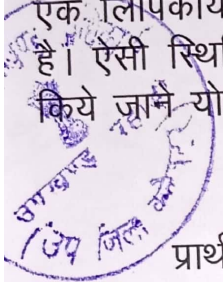 एक लिपिकीय
है। ऐसी स्थि
किये जाने यो
उप जिला
प्रार्थ